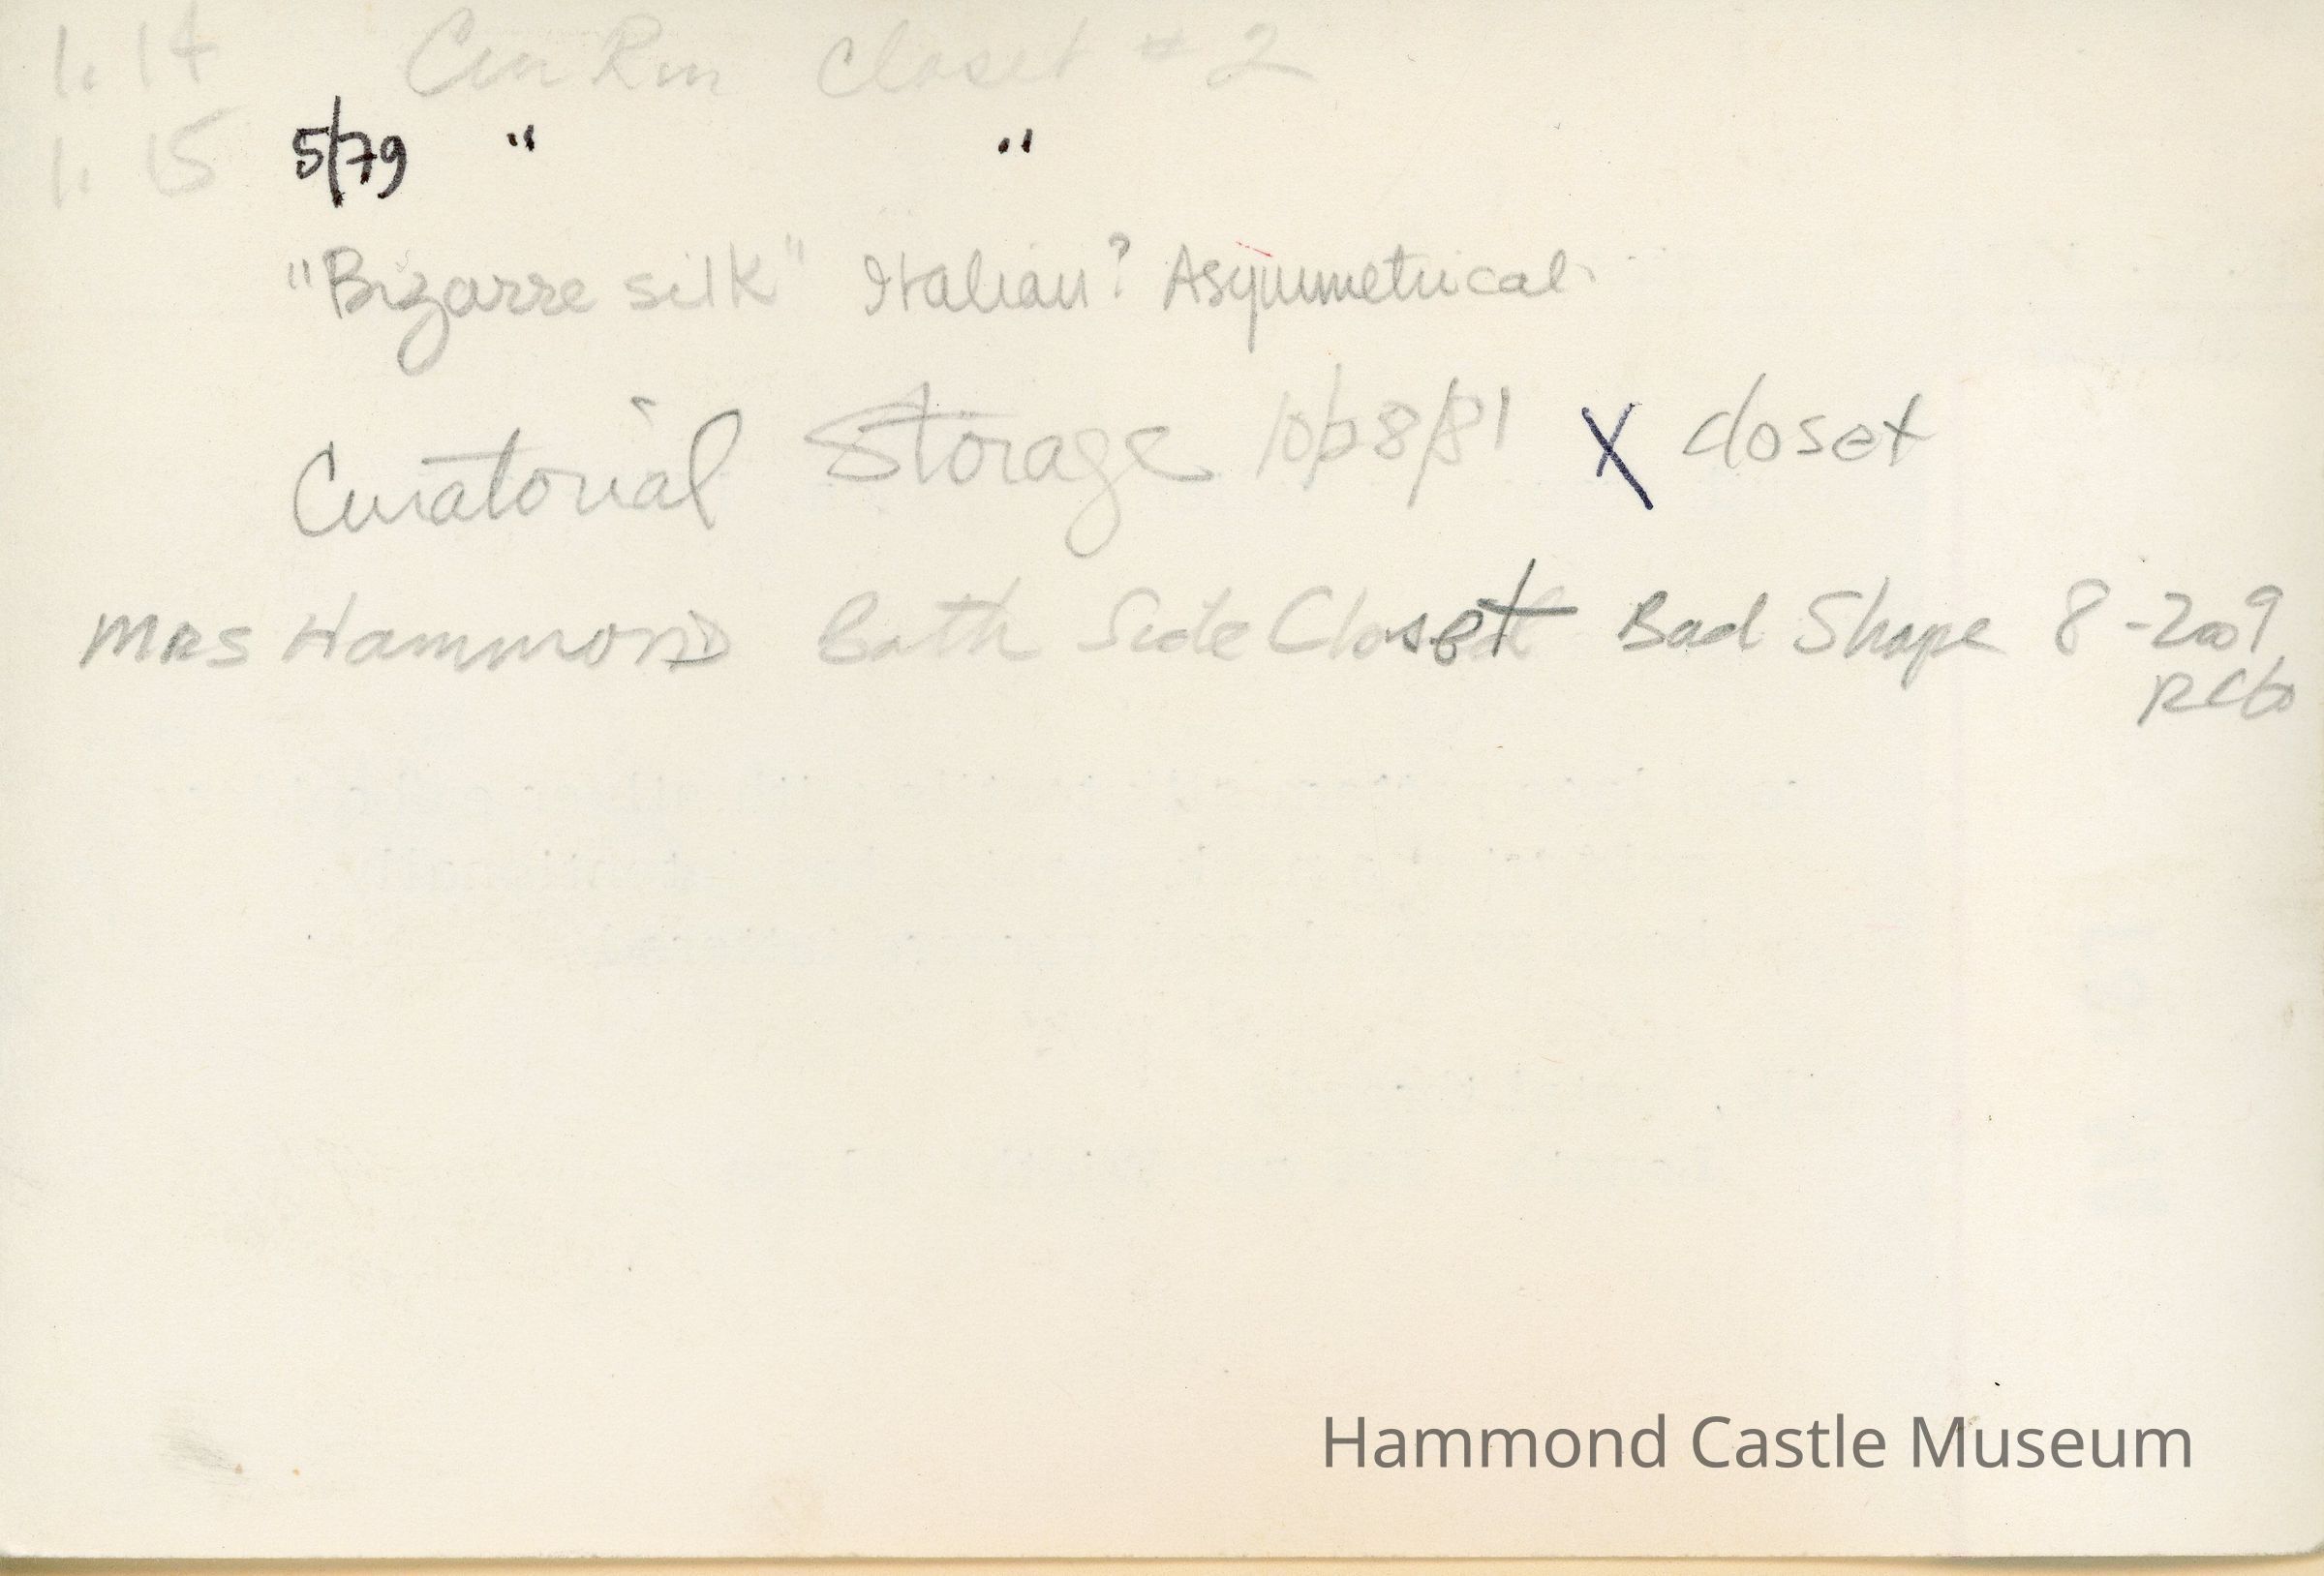 1. 14 Cur Rm Closet # 2
1. 15 5/79 " "
"Bizarre silk" Italian? Asymmetrical
Curatorial Storage 10/28/81 X closet
Mrs Hammond Bath Side Closet Bad Shape 8-2009
Hammond Castle Museum